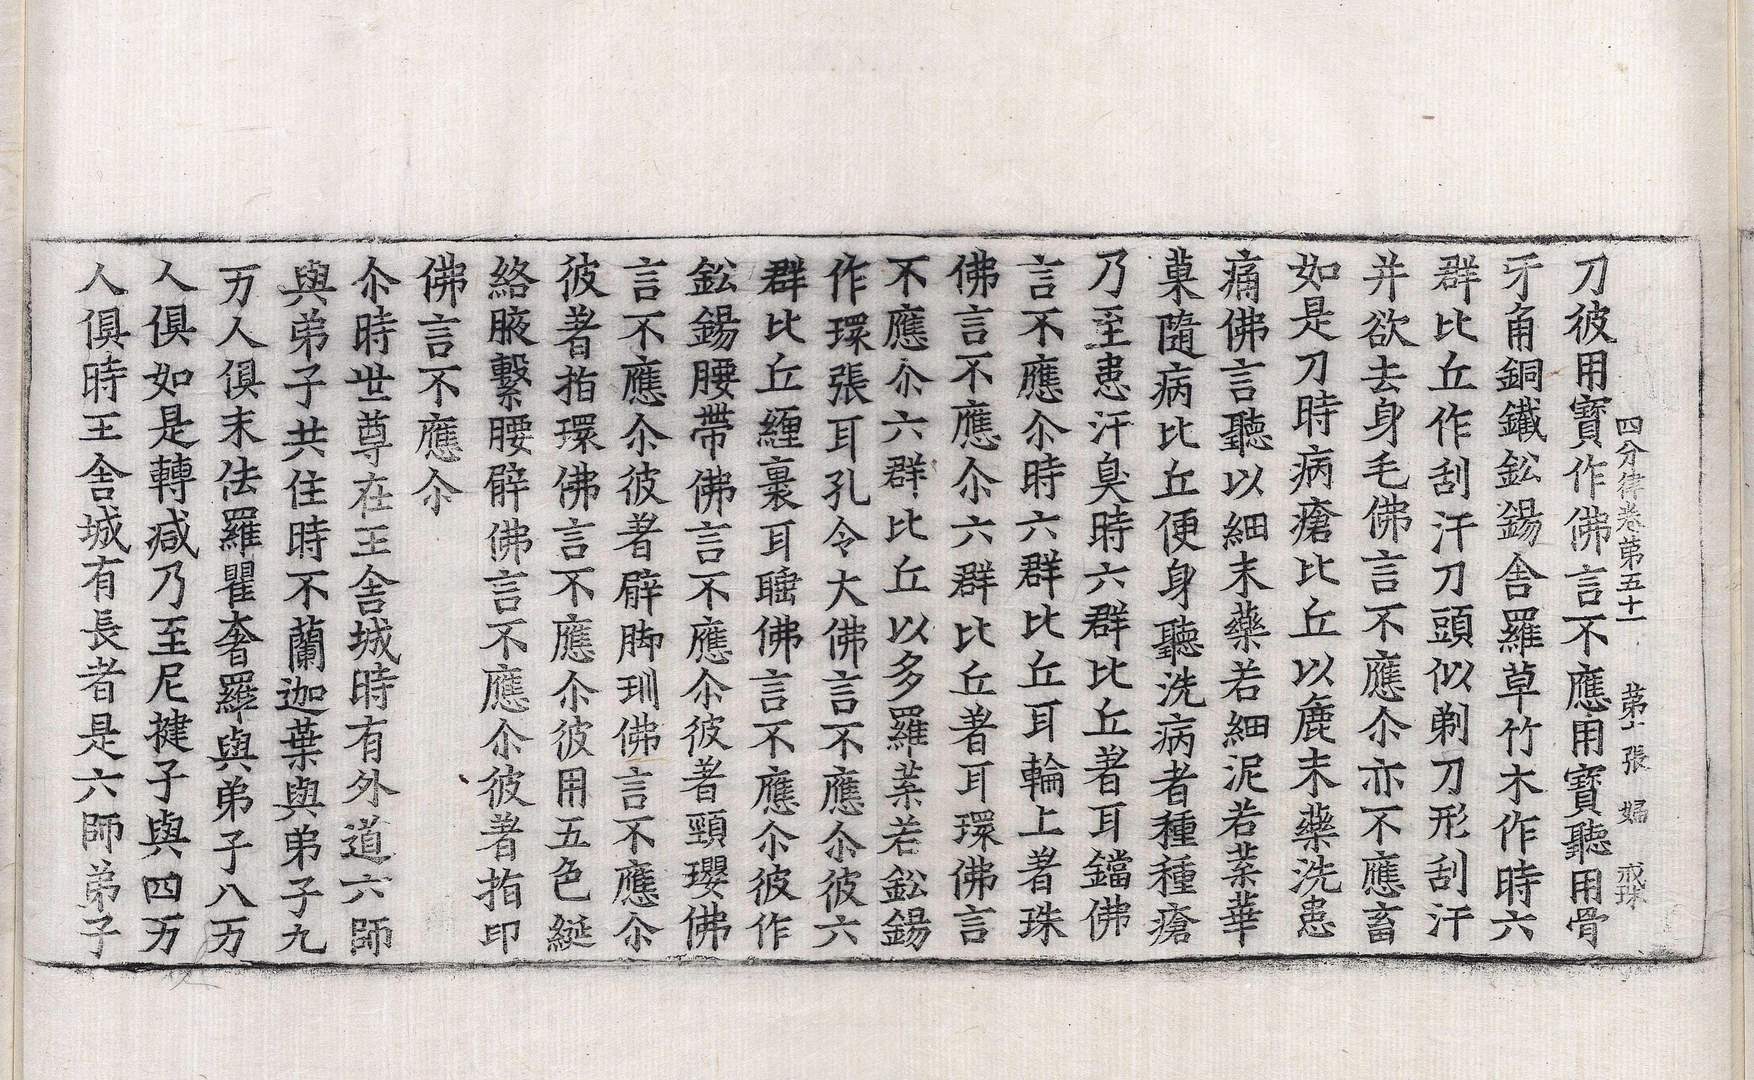 四分律卷第五十一 第十張 婦 戒珠
刀彼用寶作佛言不應用寶聽用骨
牙角銅鐵鈆錫舍羅草竹木作時六
群比丘作刮汗刀頭似剃刀形刮汗
并欲去身毛佛言不應尒亦不應畜
如是刀時病瘡比丘以麁末藥洗患
痛佛言聽以細末藥若細泥若葉華
菓隨病比丘便身聽洗病者種種瘡
乃至患汗臭時六群比丘著耳鐺佛
言不應尒時六群比丘耳輪上著珠
佛言不應尒六群比丘著耳環佛言
不應尒六群比丘以多羅葉若鈆錫
作環張耳孔令大佛言不應尒彼六
群比丘纏裹耳睡佛言不應尒彼作
鈆錫腰帶佛言不應尒彼著頸瓔佛
言不應尒彼著臂脚玔佛言不應尒
彼著指環佛言不應尒彼用五色綖
絡腋繫腰臂佛言不應尒彼著指印
佛言不應尒
尒時世尊在王舍城時有外道六師
與弟子共住時不蘭迦葉與弟子九
万人俱末佉羅瞿奢羅與弟子八万
人俱如是轉減乃至尼揵子與四万
人俱時王舍城有長者是六師弟子